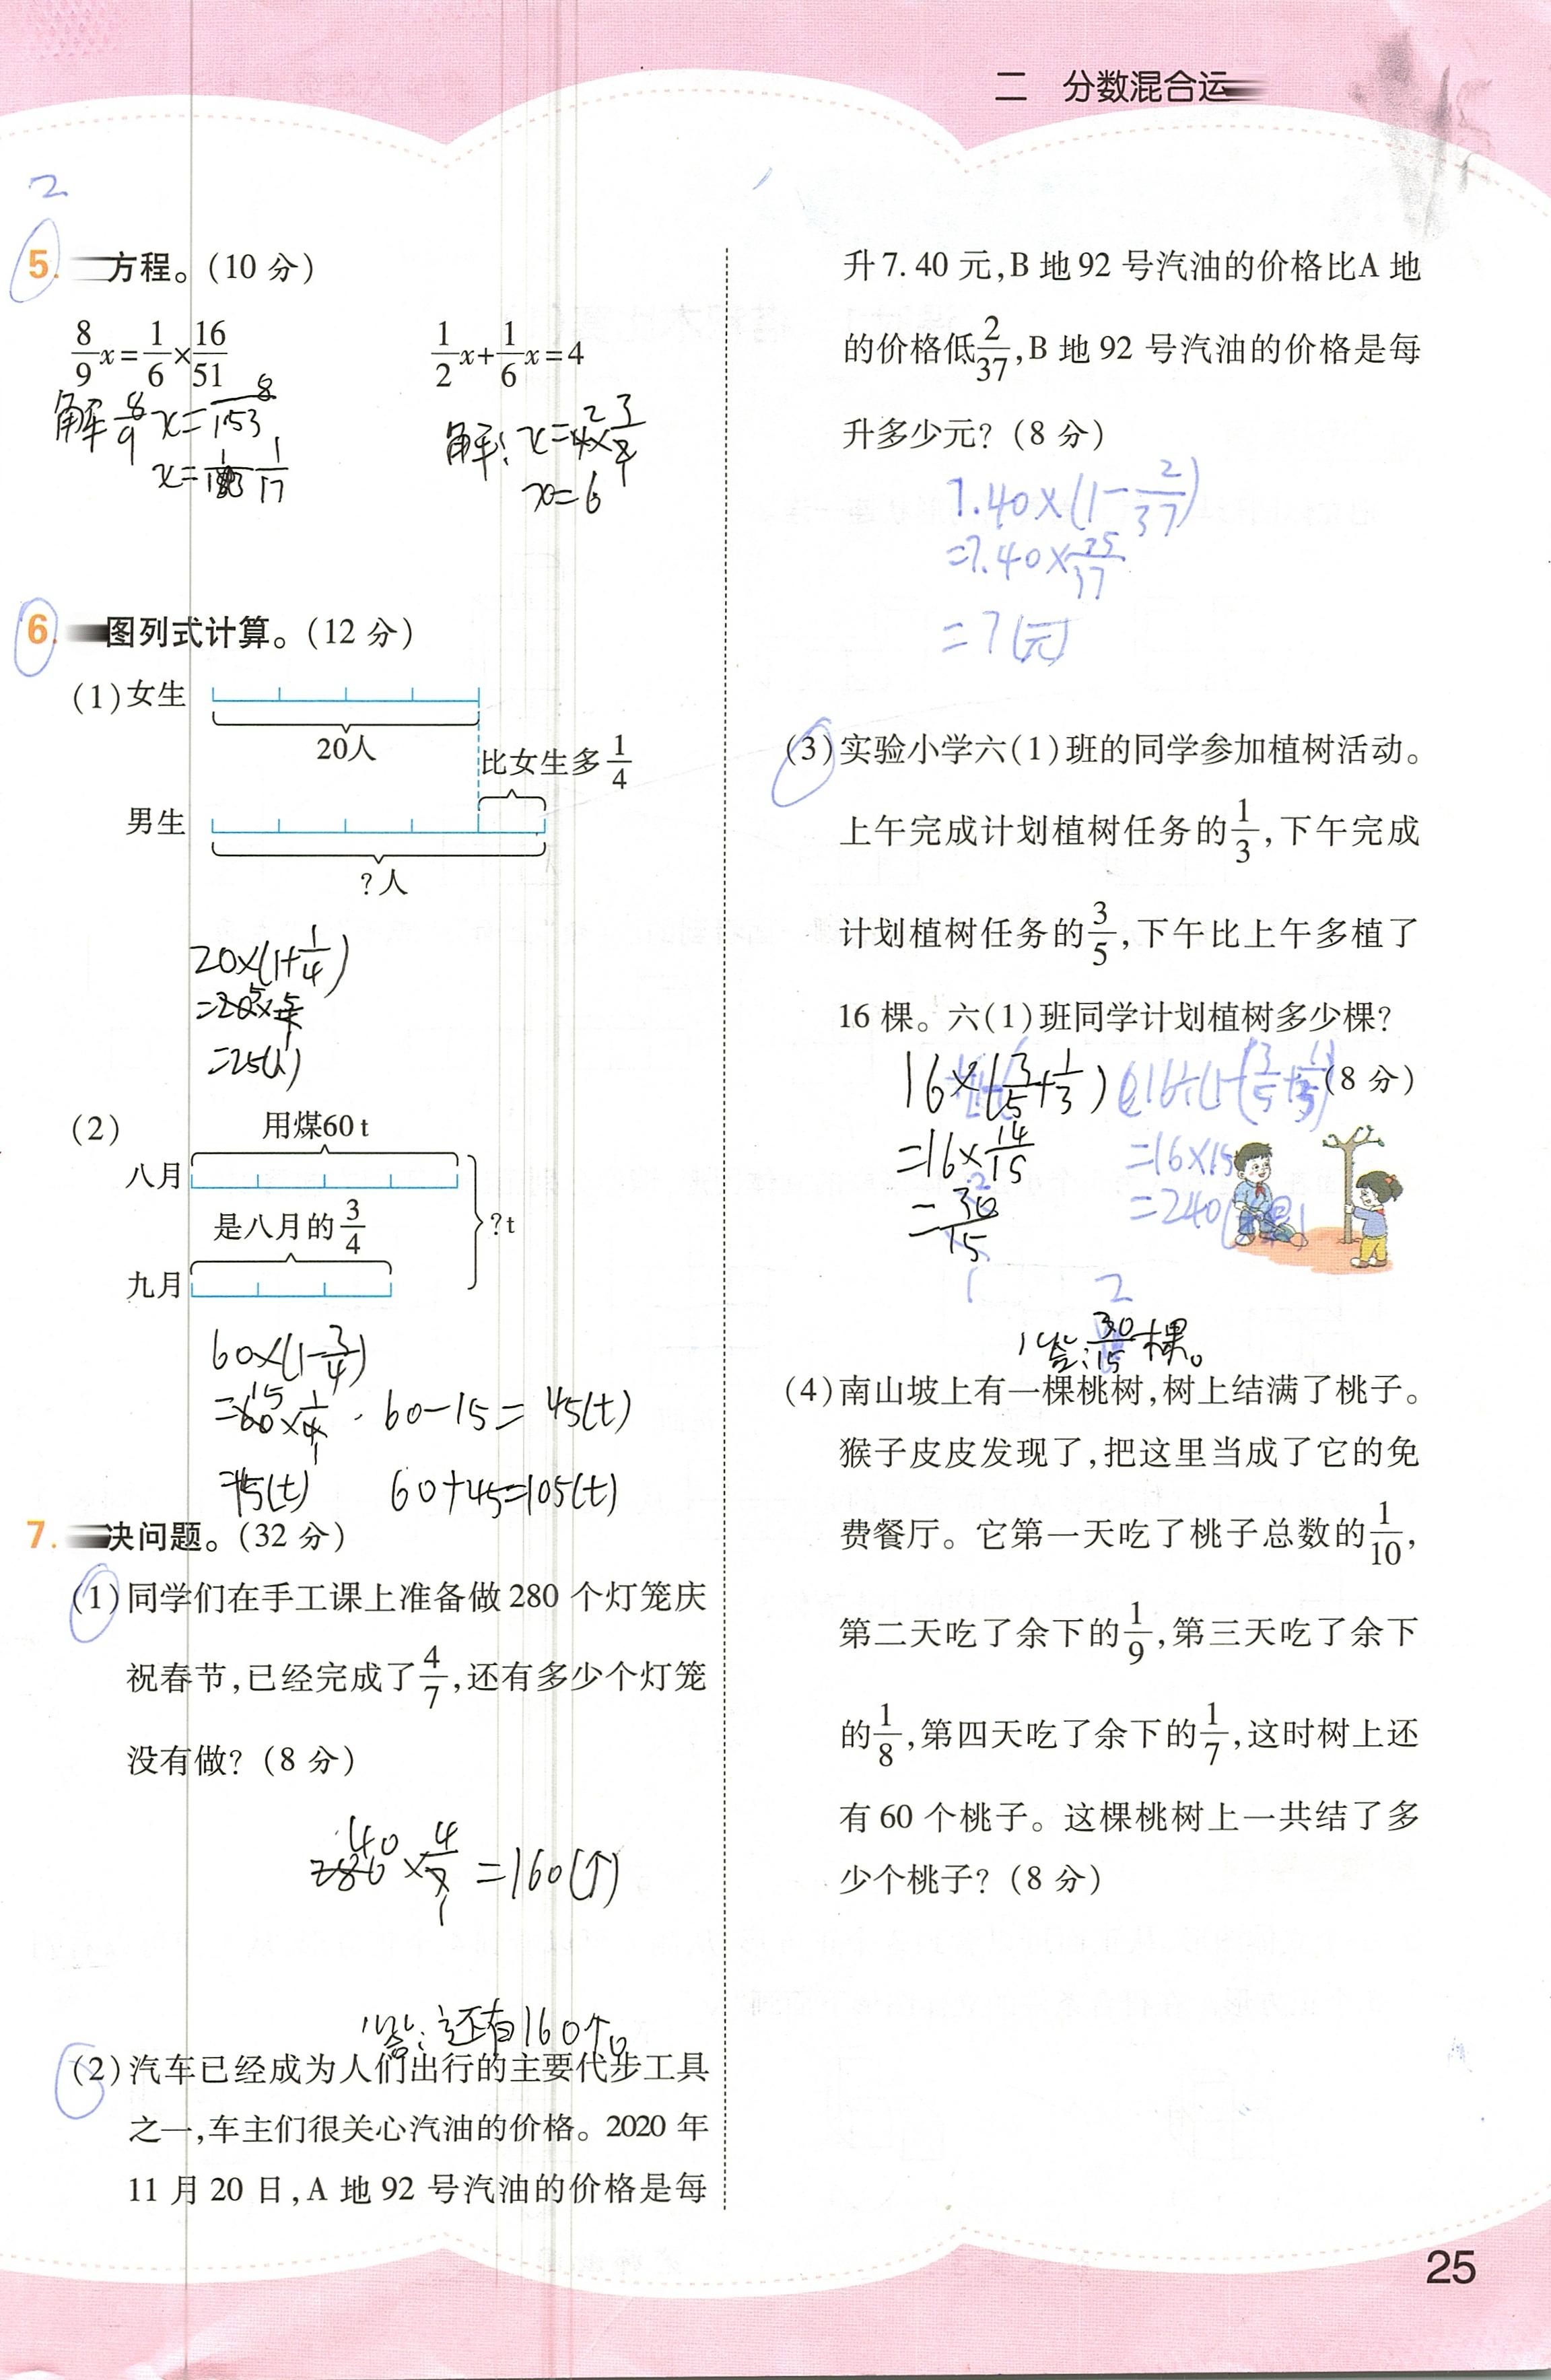 二 分数混合运
2
5. 方程。(10 分)
8/9x=1/6×16/51
1/2x+1/6x=4
解 8/9 x=8/153
x=1/17
解: x=4×3/2
x=6
6. 图列式计算。(12 分)
(1)女生
20人
比女生多1/4
男生
?人
20×(1+1/4)
=20×5/4
=25(人)
(2)
用煤60t
八月
是八月的3/4
?t
九月
60×(1-3/4)
=60×1/4
60-15=45(t)
=15(t)
60+45=105(t)
7. 决问题。(32 分)
(1)同学们在手工课上准备做 280 个灯笼庆
祝春节,已经完成了4/7,还有多少个灯笼
没有做?(8 分)
280×4/7=160(个)
答:还有160个。
(2)汽车已经成为人们出行的主要代步工具
之一,车主们很关心汽油的价格。2020 年
11 月 20 日,A 地 92 号汽油的价格是每
升7.40 元,B 地 92 号汽油的价格比A 地
的价格低2/37,B 地 92 号汽油的价格是每
升多少元?(8 分)
7.40×(1-2/37)
=7.40×35/37
=7(元)
(3)实验小学六(1)班的同学参加植树活动。
上午完成计划植树任务的1/3,下午完成
计划植树任务的3/5,下午比上午多植了
16 棵。六(1)班同学计划植树多少棵?
(8 分)
16×(3/5+1/3)
=16×14/15
=30/15
=16×15
=240
1 2
答:30/15棵。
(4)南山坡上有一棵桃树,树上结满了桃子。
猴子皮皮发现了,把这里当成了它的免
费餐厅。它第一天吃了桃子总数的1/10,
第二天吃了余下的1/9,第三天吃了余下
的1/8,第四天吃了余下的1/7,这时树上还
有 60 个桃子。这棵桃树上一共结了多
少个桃子?(8 分)
25